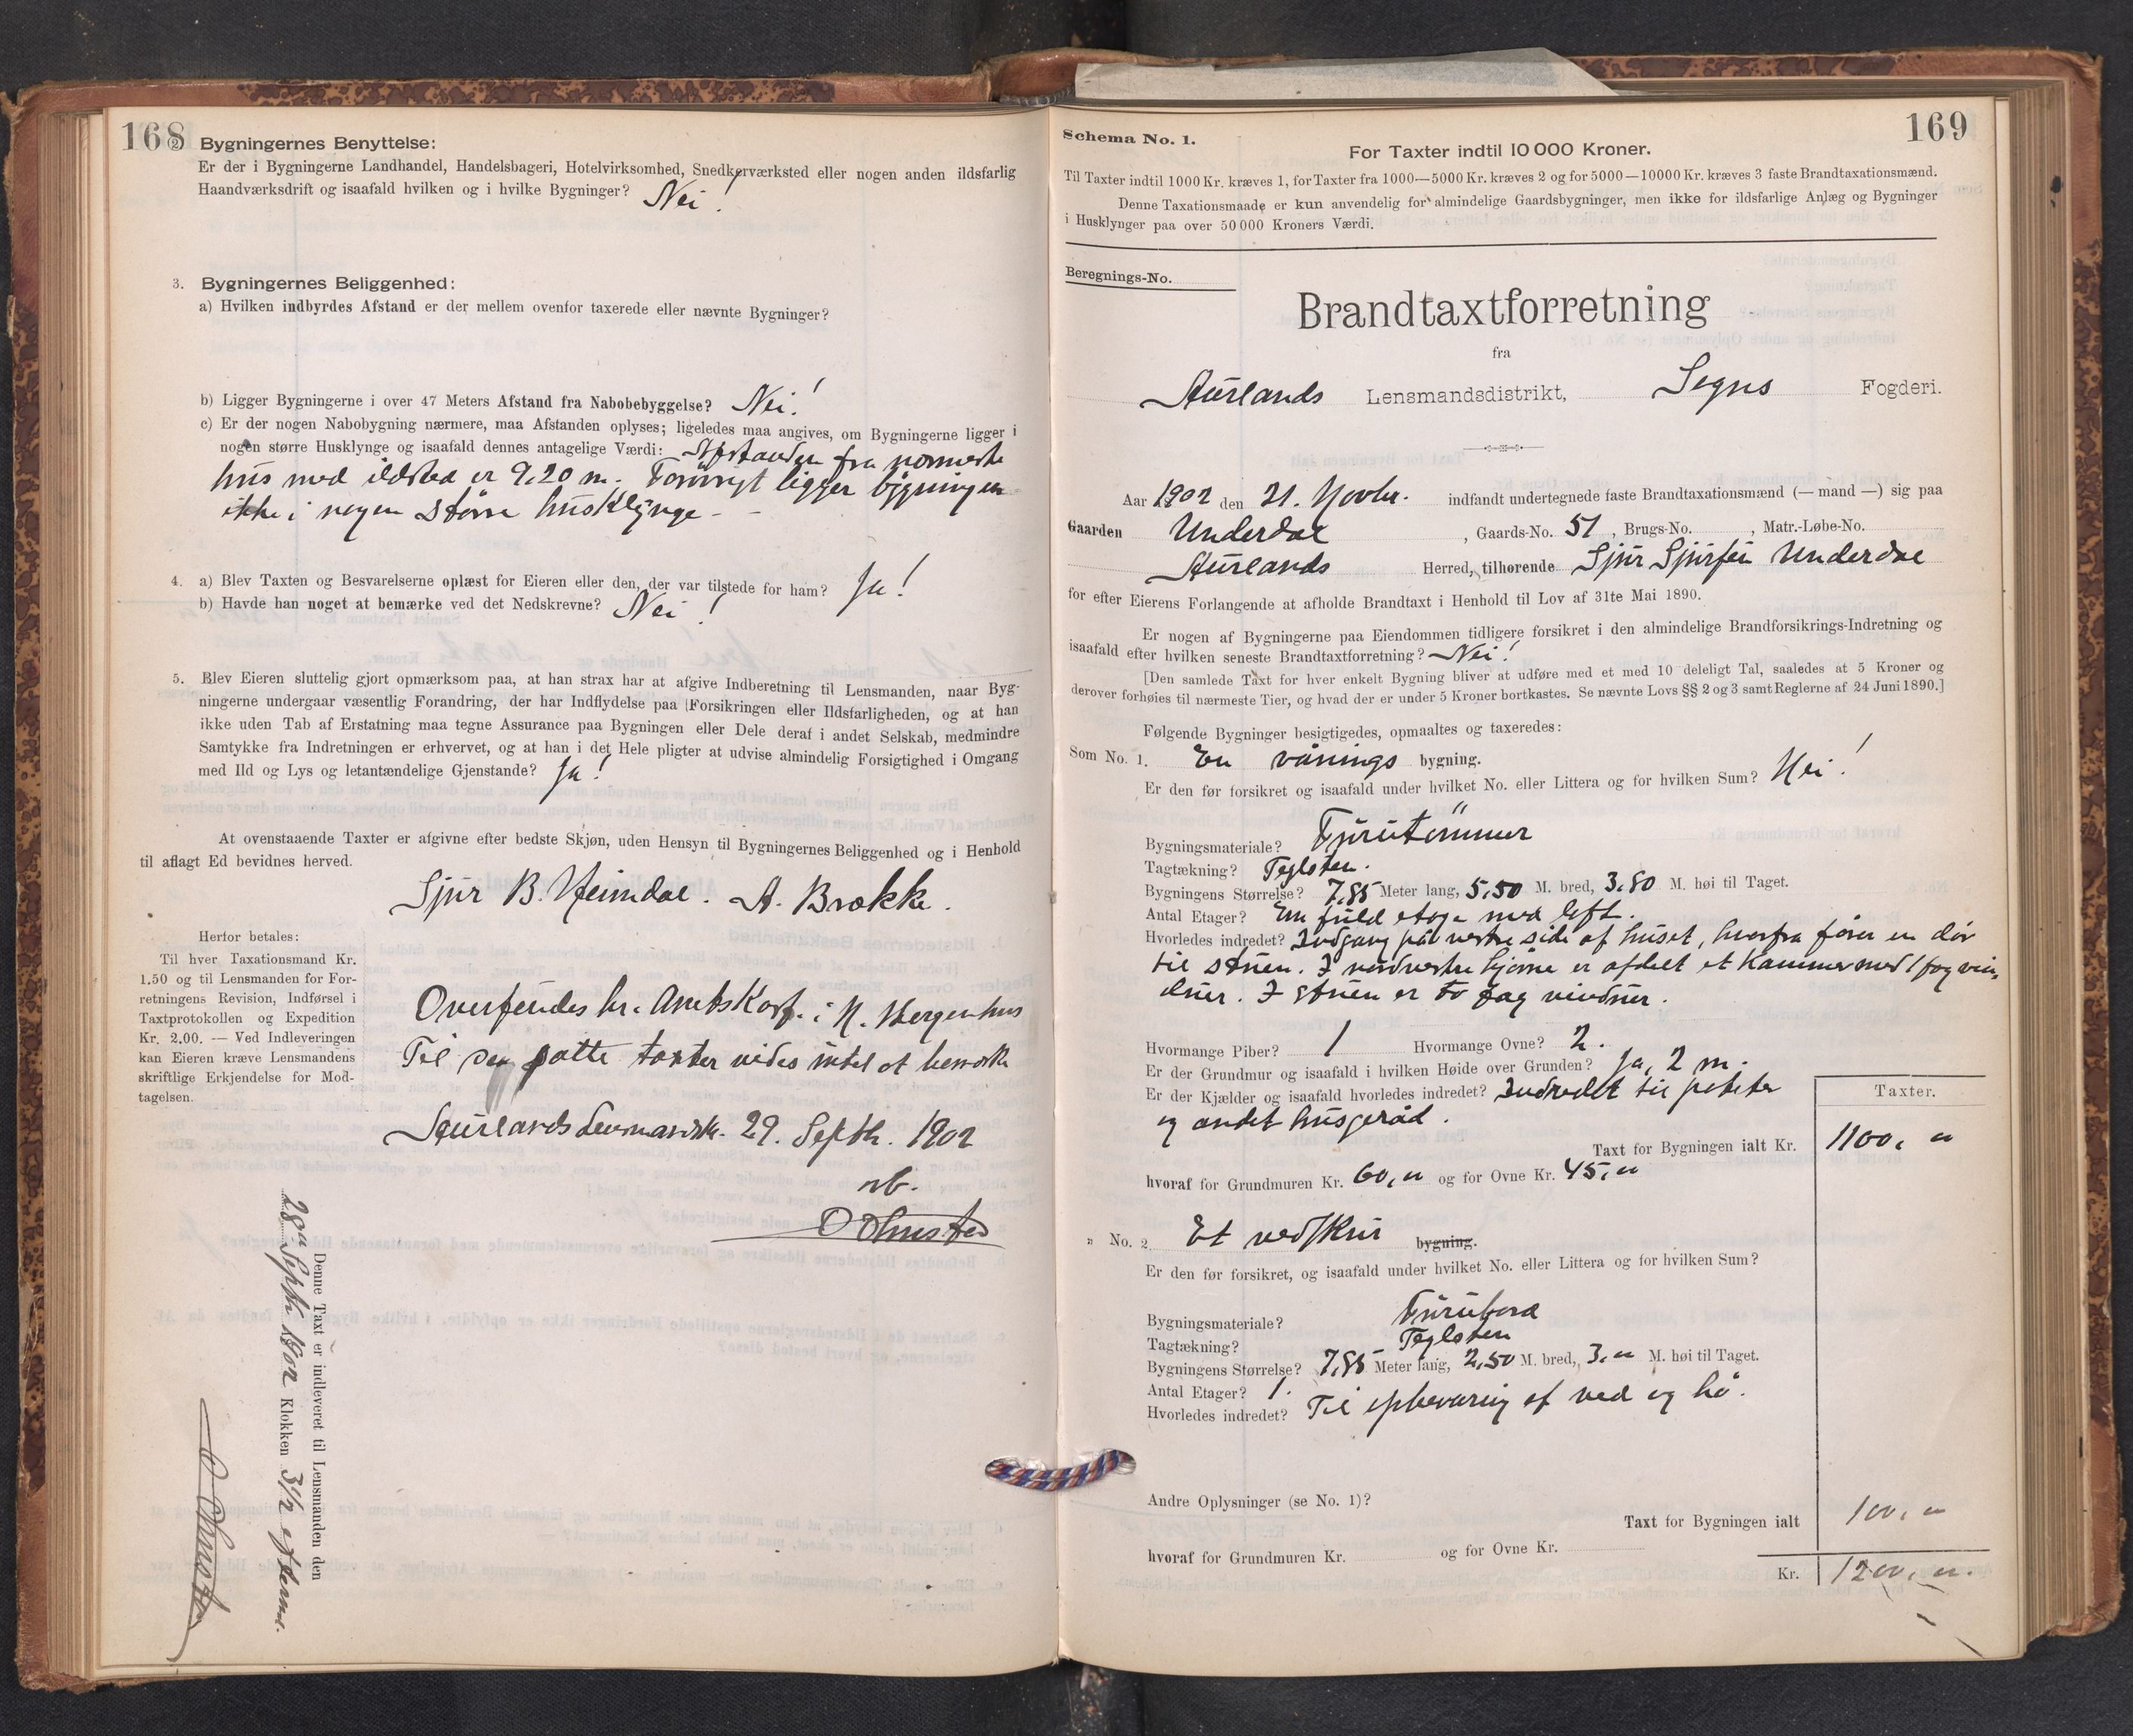 168
2. Bygningernes Benyttelse:
Er der i Bygningerne Landhandel, Handelsbageri, Hotelvirksomhed, Snedkerværksted eller nogen anden ildsfarlig
Haandværksdrift og isaafald hvilken og i hvilke Bygninger? Nei!
3. Bygningernes Beliggenhed:
a) Hvilken indbyrdes Afstand er der mellem ovenfor taxerede eller nævnte Bygninger?
b) Ligger Bygningerne i over 47 Meters Afstand fra Nabobebyggelse? Nei!
c) Er der nogen Nabobygning nærmere, maa Afstanden oplyses; ligeledes maa angives, om Bygningerne ligger i
nogen større Husklynge og isaafald dennes antagelige Værdi: Afstanden fra nærmeste
hus med ildsted er 9,20 m. Forøvrigt ligger bygningen
ikke i nogen større husklynge -
4. a) Blev Taxten og Besvarelserne oplæst for Eieren eller den, der var tilstede for ham? Ja!
b) Havde han noget at bemærke ved det Nedskrevne? Nei!
5. Blev Eieren sluttelig gjort opmærksom paa, at han strax har at afgive Indberetning til Lensmanden, naar Byg-
ningerne undergaar væsentlig Forandring, der har Indflydelse paa Forsikringen eller Ildsfarligheden, og at han
ikke uden Tab af Erstatning maa tegne Assurance paa Bygningen eller Dele deraf i andet Selskab, medmindre
Samtykke fra Indretningen er erhvervet, og at han i det Hele pligter at udvise almindelig Forsigtighed i Omgang
med Ild og Lys og letantændelige Gjenstande? Ja!
At ovenstaaende Taxter er afgivne efter bedste Skjøn, uden Hensyn til Bygningernes Beliggenhed og i Henhold
til aflagt Ed bevidnes herved.
Sjur B. Heimdal. A. Brække.
Herfor betales:
Til hver Taxationsmand Kr.
1.50 og til Lensmanden for For-
retningens Revision, Indførsel i
Taxtprotokollen og Expedition
Kr. 2.00. — Ved Indleveringen
kan Eieren kræve Lensmandens
skriftlige Erkjendelse for Mod-
tagelsen.
Oversendes hr. Amtskasf. i N. Bergenhus
Til den satte taxter vides intet at bemærke
Aurlands Lensmandsk. 29. Septbr. 1902
Denne Taxt er indleveret til Lensmanden den
28de Septbr 1902 Klokken 3 1/2 efterm.
169
Schema No. 1.
For Taxter indtil 10 000 Kroner.
Til Taxter indtil 1000 Kr. kræves 1, for Taxter fra 1000—5000 Kr. kræves 2 og for 5000—10000 Kr. kræves 3 faste Brandtaxationsmænd.
Denne Taxationsmaade er kun anvendelig for almindelige Gaardsbygninger, men ikke for ildsfarlige Anlæg og Bygninger
i Husklynger paa over 50 000 Kroners Værdi.
Beregnings-No.
Brandtaxtforretning
fra
Aurlands Lensmandsdistrikt, Sogns Fogderi.
Aar 1902 den 21. Novbr. indfandt undertegnede faste Brandtaxationsmænd (— mand —) sig paa
Gaarden Underdal, Gaards-No. 51, Brugs-No. , Matr.-Løbe-No.
Aurlands Herred, tilhørende Sjur Sjursen Underdal
for efter Eierens Forlangende at afholde Brandtaxt i Henhold til Lov af 31te Mai 1890.
Er nogen af Bygningerne paa Eiendommen tidligere forsikret i den almindelige Brandforsikrings-Indretning og
isaafald efter hvilken seneste Brandtaxtforretning? Nei!
[Den samlede Taxt for hver enkelt Bygning bliver at udføre med et med 10 deleligt Tal, saaledes at 5 Kroner og
derover forhøies til nærmeste Tier, og hvad der er under 5 Kroner bortkastes. Se nævnte Lovs §§ 2 og 3 samt Reglerne af 24 Juni 1890.]
Følgende Bygninger besigtigedes, opmaaltes og taxeredes:
Som No. 1. En vånings bygning.
Er den før forsikret og isaafald under hvilket No. eller Littera og for hvilken Sum? Nei!
Bygningsmateriale? Furutømmer
Tagtækning? Teglsten.
Bygningens Størrelse? 7,85 Meter lang, 5,50 M. bred, 3,80 M. høi til Taget.
Antal Etager? En fuld etage med loft.
Hvorledes indredet? Indgang på vestre side af huset, hvorfra fører en dør
til stuen. I nordvestre hjørne er afdelt et kammer med 1 fag vin-
duer. I stuen er to fag vinduer.
Hvormange Piber? 1 Hvormange Ovne? 2.
Er der Grundmur og isaafald i hvilken Høide over Grunden? Ja, 2 m.
Er der Kjælder og isaafald hvorledes indredet? Indredet til poteter
og andet husgeråd.
Taxter.
Taxt for Bygningen ialt Kr. 1100, "
hvoraf for Grundmuren Kr. 60, " og for Ovne Kr. 45, "
" No. 2 Et vedskur bygning.
Er den før forsikret, og isaafald under hvilket No. eller Littera og for hvilken Sum?
Bygningsmateriale? Furubord
Tagtækning? Teglsten
Bygningens Størrelse? 7,85 Meter lang, 2,50 M. bred, 3, " M. høi til Taget.
Antal Etager? 1.
Hvorledes indredet? Til opbevaring af ved og hø.
Andre Oplysninger (se No. 1)?
Taxt for Bygningen ialt 100, "
hvoraf for Grundmuren Kr. og for Ovne Kr.
Kr. 1200, ".